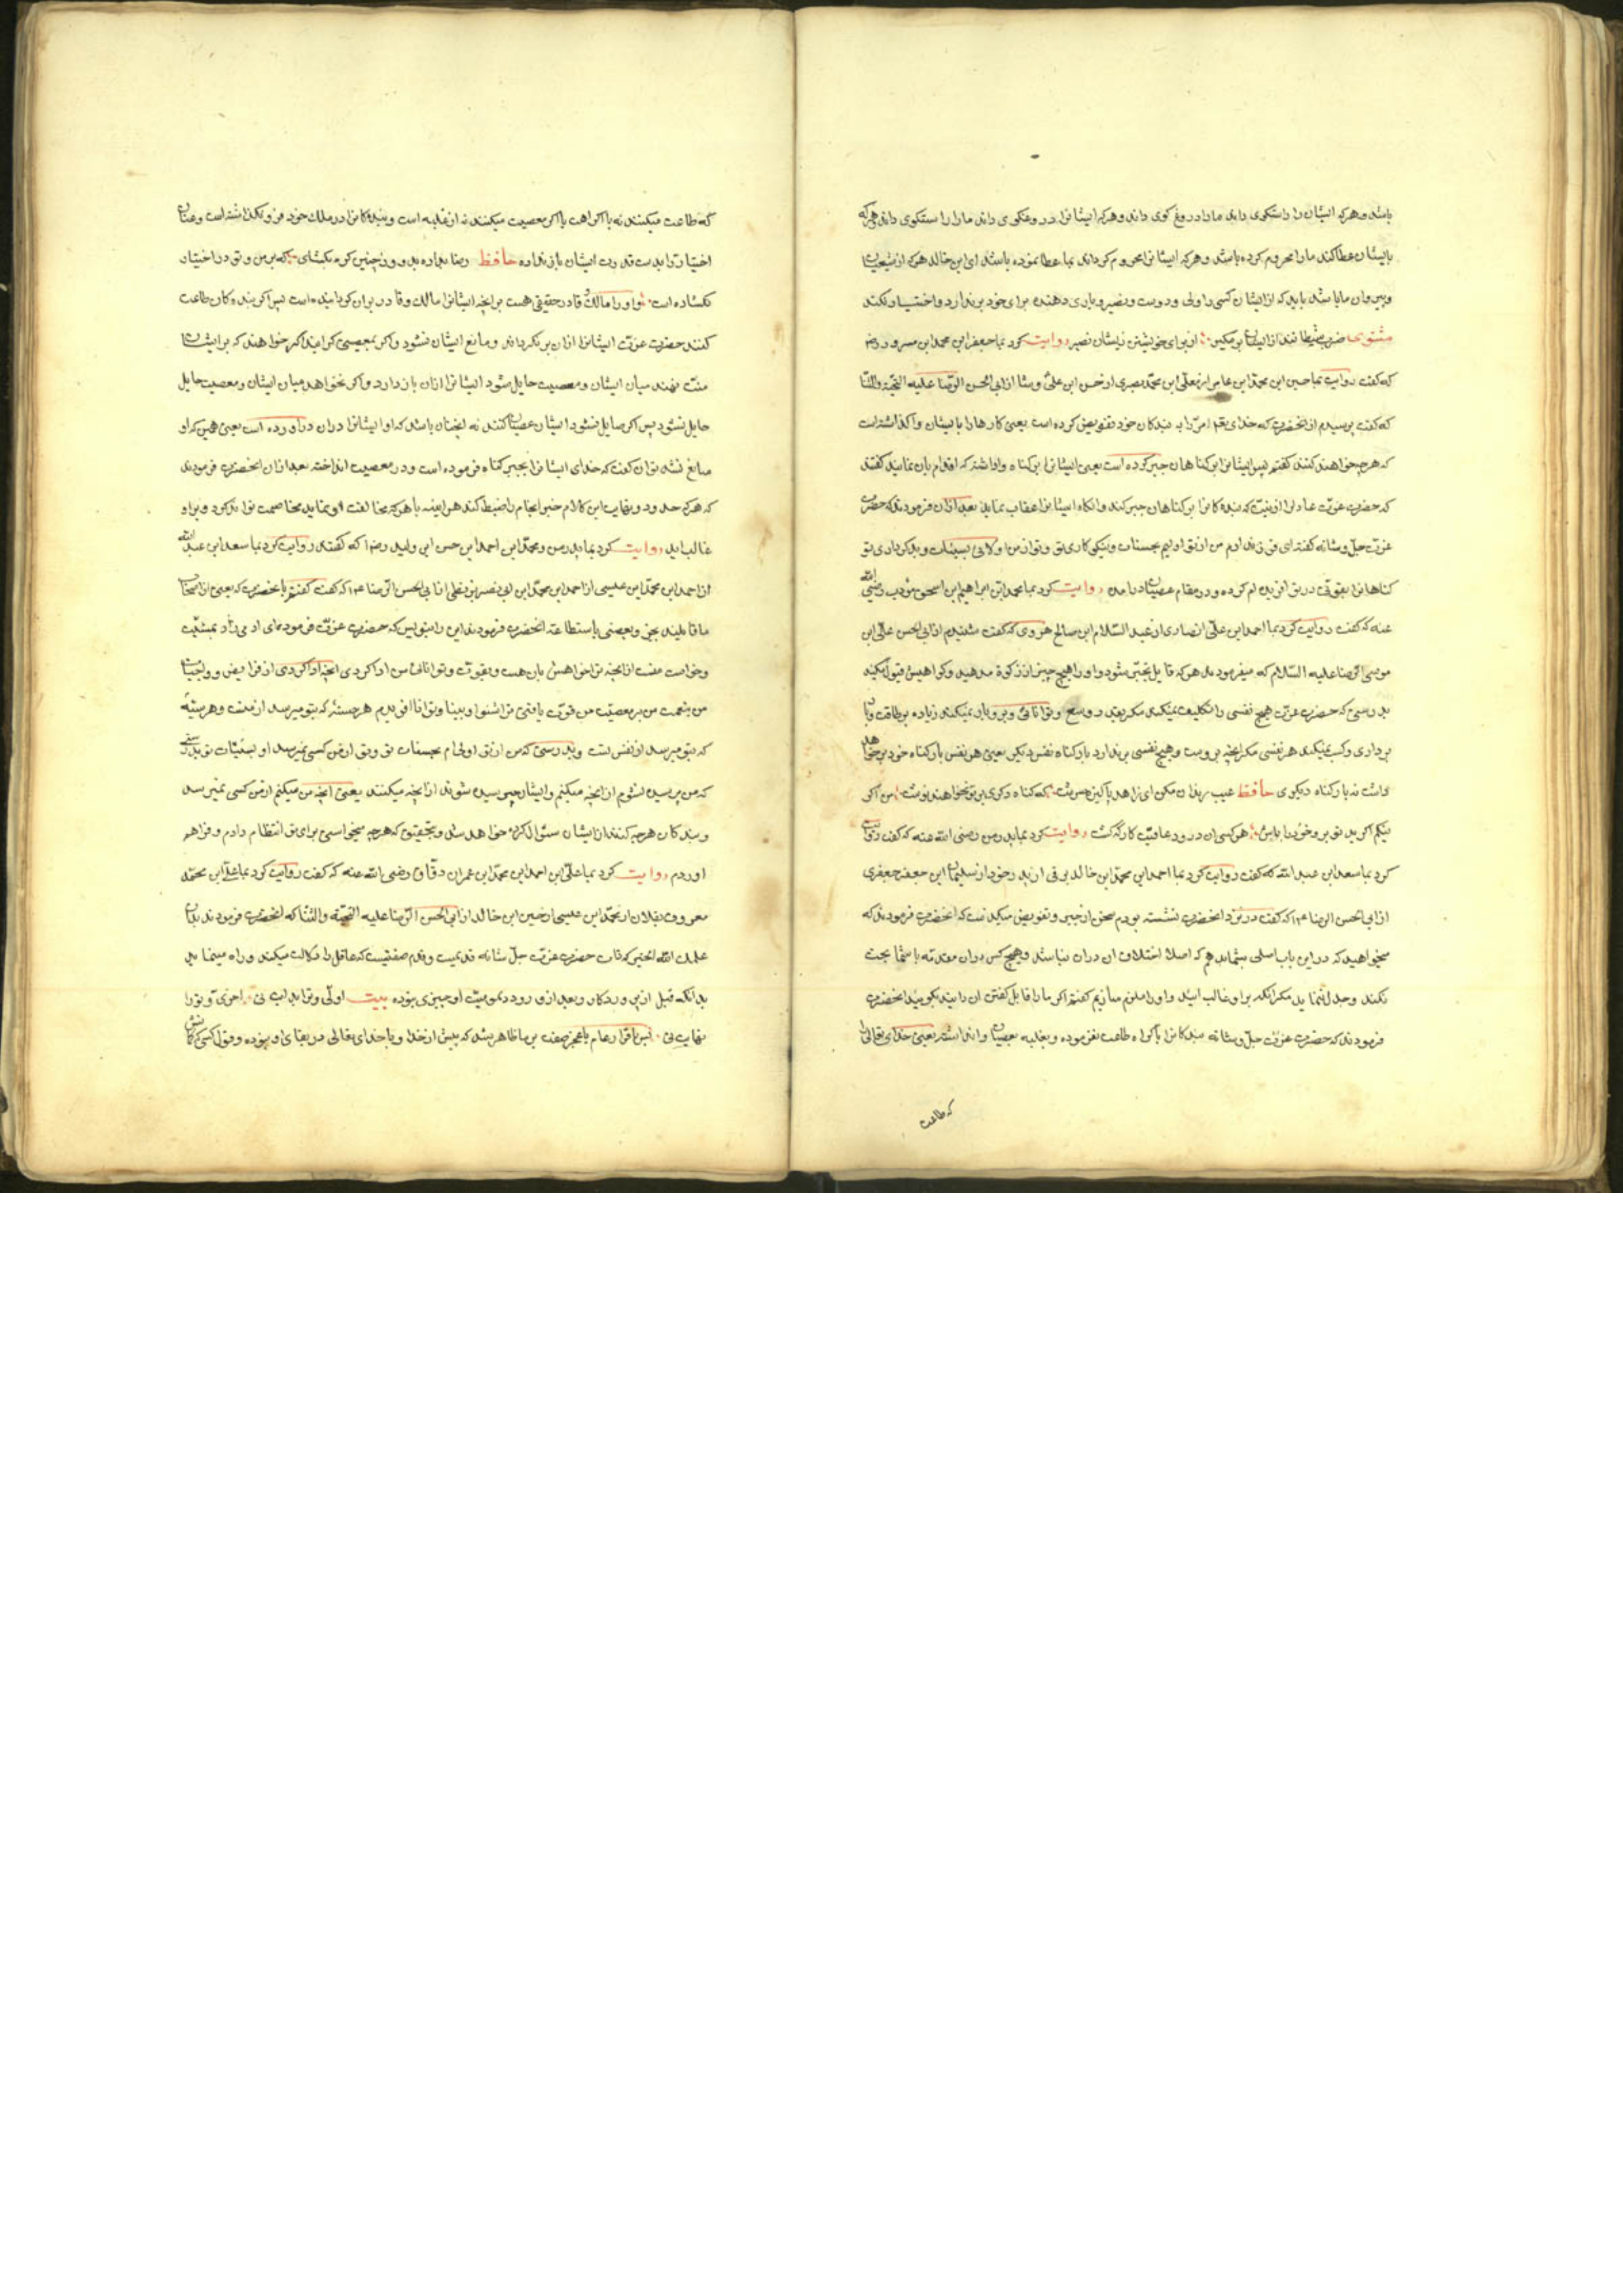 باشد و هرکه ایشان را راستکوی داند مارا دروغ کوی داند و هرکه ایشانرا دروغکوی داند مارا راستکوی داند هرکه
بایشان عطا کند مارا محروم کرده باشد و هرکه ایشانرا محروم کرداند بما عطا نموده باشد ای ابن خالد هرکه از شیعیان
و پیروان ما باشد باید که از ایشان کسی را ولی و دوست و نصیر و یاری دهنده برای خود برندارد و اختیار نکند
مثنوی از برای خویشتن زیشان نصیر روایت کرد بما جعفر ابن محمد ابن مسرور رض
که کفت روایت کرد بما حسین ابن محمد ابن عامر از معلی ابن محمد بصری از حسن ابن علی وشا از ابی الحسن الرضا علیه التحیة والثنا
که کفت پرسیدم از انحضرت که خدای تعم امر را به بندکان خود تفویض کرده است یعنی کارها را بایشان واکذاشته است
که هرچه خواهند کنند کفتم پس ایشانرا بر کناهان جبر کرده است یعنی ایشانرا بر کناه واداشته که اقدام بان نمایند کفتند
که حضرت عزت عادلتر از نیست که بندکانرا بر کناهان جبر کند وانکاه ایشانرا عقاب نماید بعد ازان فرمودند که حضرت
عزت جل و شانه کفته ای فرزند ادم من از تو اولیم بحسنات و نیکوکاری تو و تو از من اولائی بسیئات و بدکرداری تو
کناهانرا بقوتی در تو افریده ام کرده و در مقام عصیان درامده روایت کرد بما محمد ابن ابراهیم بن اسحق مؤدب رضی الله
عنه که کفت روایت کرد بما احمد ابن علی انصاری از عبد السلام ابن صالح هروی که کفت شنیدم از ابی الحسن علی ابن
موسی الرضا علیه السلام که میفرمودند هرکه قایل بجبر شود او را هیچ چیز از زکوة مدهید و کواهیش قبول مکنید
بدرستی که حضرت عزت هیچ نفسی را تکلیف نمیکند مکر بقدر وسع و توانائی او و برو بار نمیکند زیاده بر طاقت و
برداری و کسب نمیکند هر نفسی مکر انچه بروست و هیچ نفسی برندارد بار کناه نفس دیکر یعنی هر نفس بار کناه خود برخواهد
داشت نه بار کناه دیکری حافظ عیب رندان مکن ای زاهد پاکیزه سرشت که کناه دکری بر تو نخواهند نوشت من اکر
نیکم اکر بد تو برو خود را باش هر کسی ان درود عاقبت کار که کشت روایت کرد بما پدر من رضی الله عنه که کفت روایت
کرد بما سعد ابن عبد الله که کفت روایت کرد بما احمد ابن محمد ابن خالد برقی از پدر خود از سلیمان ابن جعفر جعفری
از ابی الحسن الرضا ع م که کفت در نزد انحضرت نشسته بودم سخن از جبر و تفویض میکذشت که انحضرت فرمودند که
میخواهید که در این باب اصلی بشما بدهم که اصلا اختلاف ان دران نباشد و هیچ کس دران مقدمه با شما بحث
نکند و جدل ننماید مکر انکه بر او غالب ایید و او را ملزم سازیم کفتم اکر مارا قابل کفتن ان دانید بکویید انحضرت
فرمودند که حضرت عزت جل و شانه بندکانرا باکراه طاعت نفرموده و بغلبه بعصیان وانداشته یعنی خدای تعالی را
که طاعت
که طاعت میکنند نه باکراهت یا اکر معصیت میکنند نه از غلبه است و بندکانرا در ملک خود فرو نکذاشته است و عنان
اختیار را بدست قدرت ایشان باز نداده حافظ رضا بداده بده وز جبین کره بکشای که بر من و تو در اختیار
نکشاده است و او را مالک و قادر حقیقی است بر انچه ایشانرا مالک و قادر بران کردانیده است پس اکر بندکان طاعت
کنند حضرت عزت ایشانرا ازان برنکرداند و مانع ایشان نشود و اکر بمعصیتی کرایند اکر خواهند که بر ایشان
منت نهند میان ایشان و معصیت حایل شود ایشانرا ازان بازدارد و اکر نخواهد میان ایشان و معصیت حایل
حایل نشود پس اکر حایل نشود ایشان عصیان کنند نه انچنان باشد که او ایشانرا دران دراورده است یعنی همین که او
مانع نشد نتوان کفت که خدای ایشانرا بجبر کناه فرموده است و در معصیت انداخته بعد ازان انحضرت فرمودند
که هرکه حدود و نهایت این کلام خیر انجام را ضبط کند هراینه با هرکه مخالفت او نماید مخاصمت تواند کرد و بر او
غالب اید روایت کرد بما پدر من و محمد ابن احمد ابن حسن ابن ولید رض که کفتند روایت کرد بما سعد ابن عبد الله
از احمد ابن محمد ابن عیسی از احمد ابن محمد ابن ابی نصر بزنطی از ابی الحسن الرضا ع م که کفت کفتم بانحضرت که بعضی از اصحاب
ما قایلند بجبر و بعضی باستطاعت انحضرت فرمودند این را بنویس که حضرت عزت فرموده ای ادمی زاد بمشیت
و خواست منست از انچه تو خواهش بان هست و بقوت و توانائی من ادا کردی انچه ادا کردی از فرایض و واجبات
من بنعمت من بر معصیت من قوت یافتی ترا شنوا و بینا و توانا افریدم هر حسنه که بتو میرسد از منست و هر سیئه
که بتو میرسد از نفس تست و بدرستی که من از تو اولی ام بحسنات تو و تو از من اولی بسیئات تو بدرستی
که من پرسیده نشوم از انچه میکنم و ایشان پرسیده شوند از انچه میکنند یعنی انچه من میکنم از من کسی نمیرسد
و بندکان هرچه کنند از ایشان سئوال کرده خواهد شد و بتحقیق که هرچه میخواستی برای تو انتظام دادم و فراهم
اوردم روایت کرد بما علی ابن احمد ابن محمد ابن عمران دقاق رضی الله عنه که کفت روایت کرد بما علی ابن محمد
معروف بعلان از محمد ابن عیسی از حسین ابن خالد از ابی الحسن الرضا علیه التحیة والثنا که انحضرت فرمودند بدان
علمک الله الخیر که ذات حضرت عزت جل شانه قدیمست و قدم صفتیست که عاقل را دلالت میکند و راه مینماید
بدانکه قبل ازین وردکار و بعد ازو در دیمومیت او چیزی نبوده بیت اولی و ترا بدایت نی اخری و ترا
نهایت نی پس باقرار عام با عجز صفت بر ما ظاهر شد که پیش از خدا و یا خدای تعالی در بقای او نبوده و قول کسی که